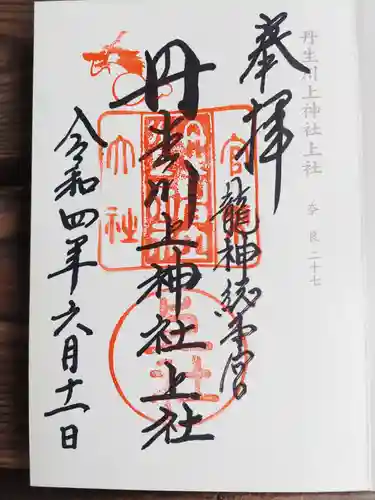 丹生川上神社上社
奈良二十七
奉拝
龍神総本宮
丹生川上神社上社
官
大社
令和四年六月十一日